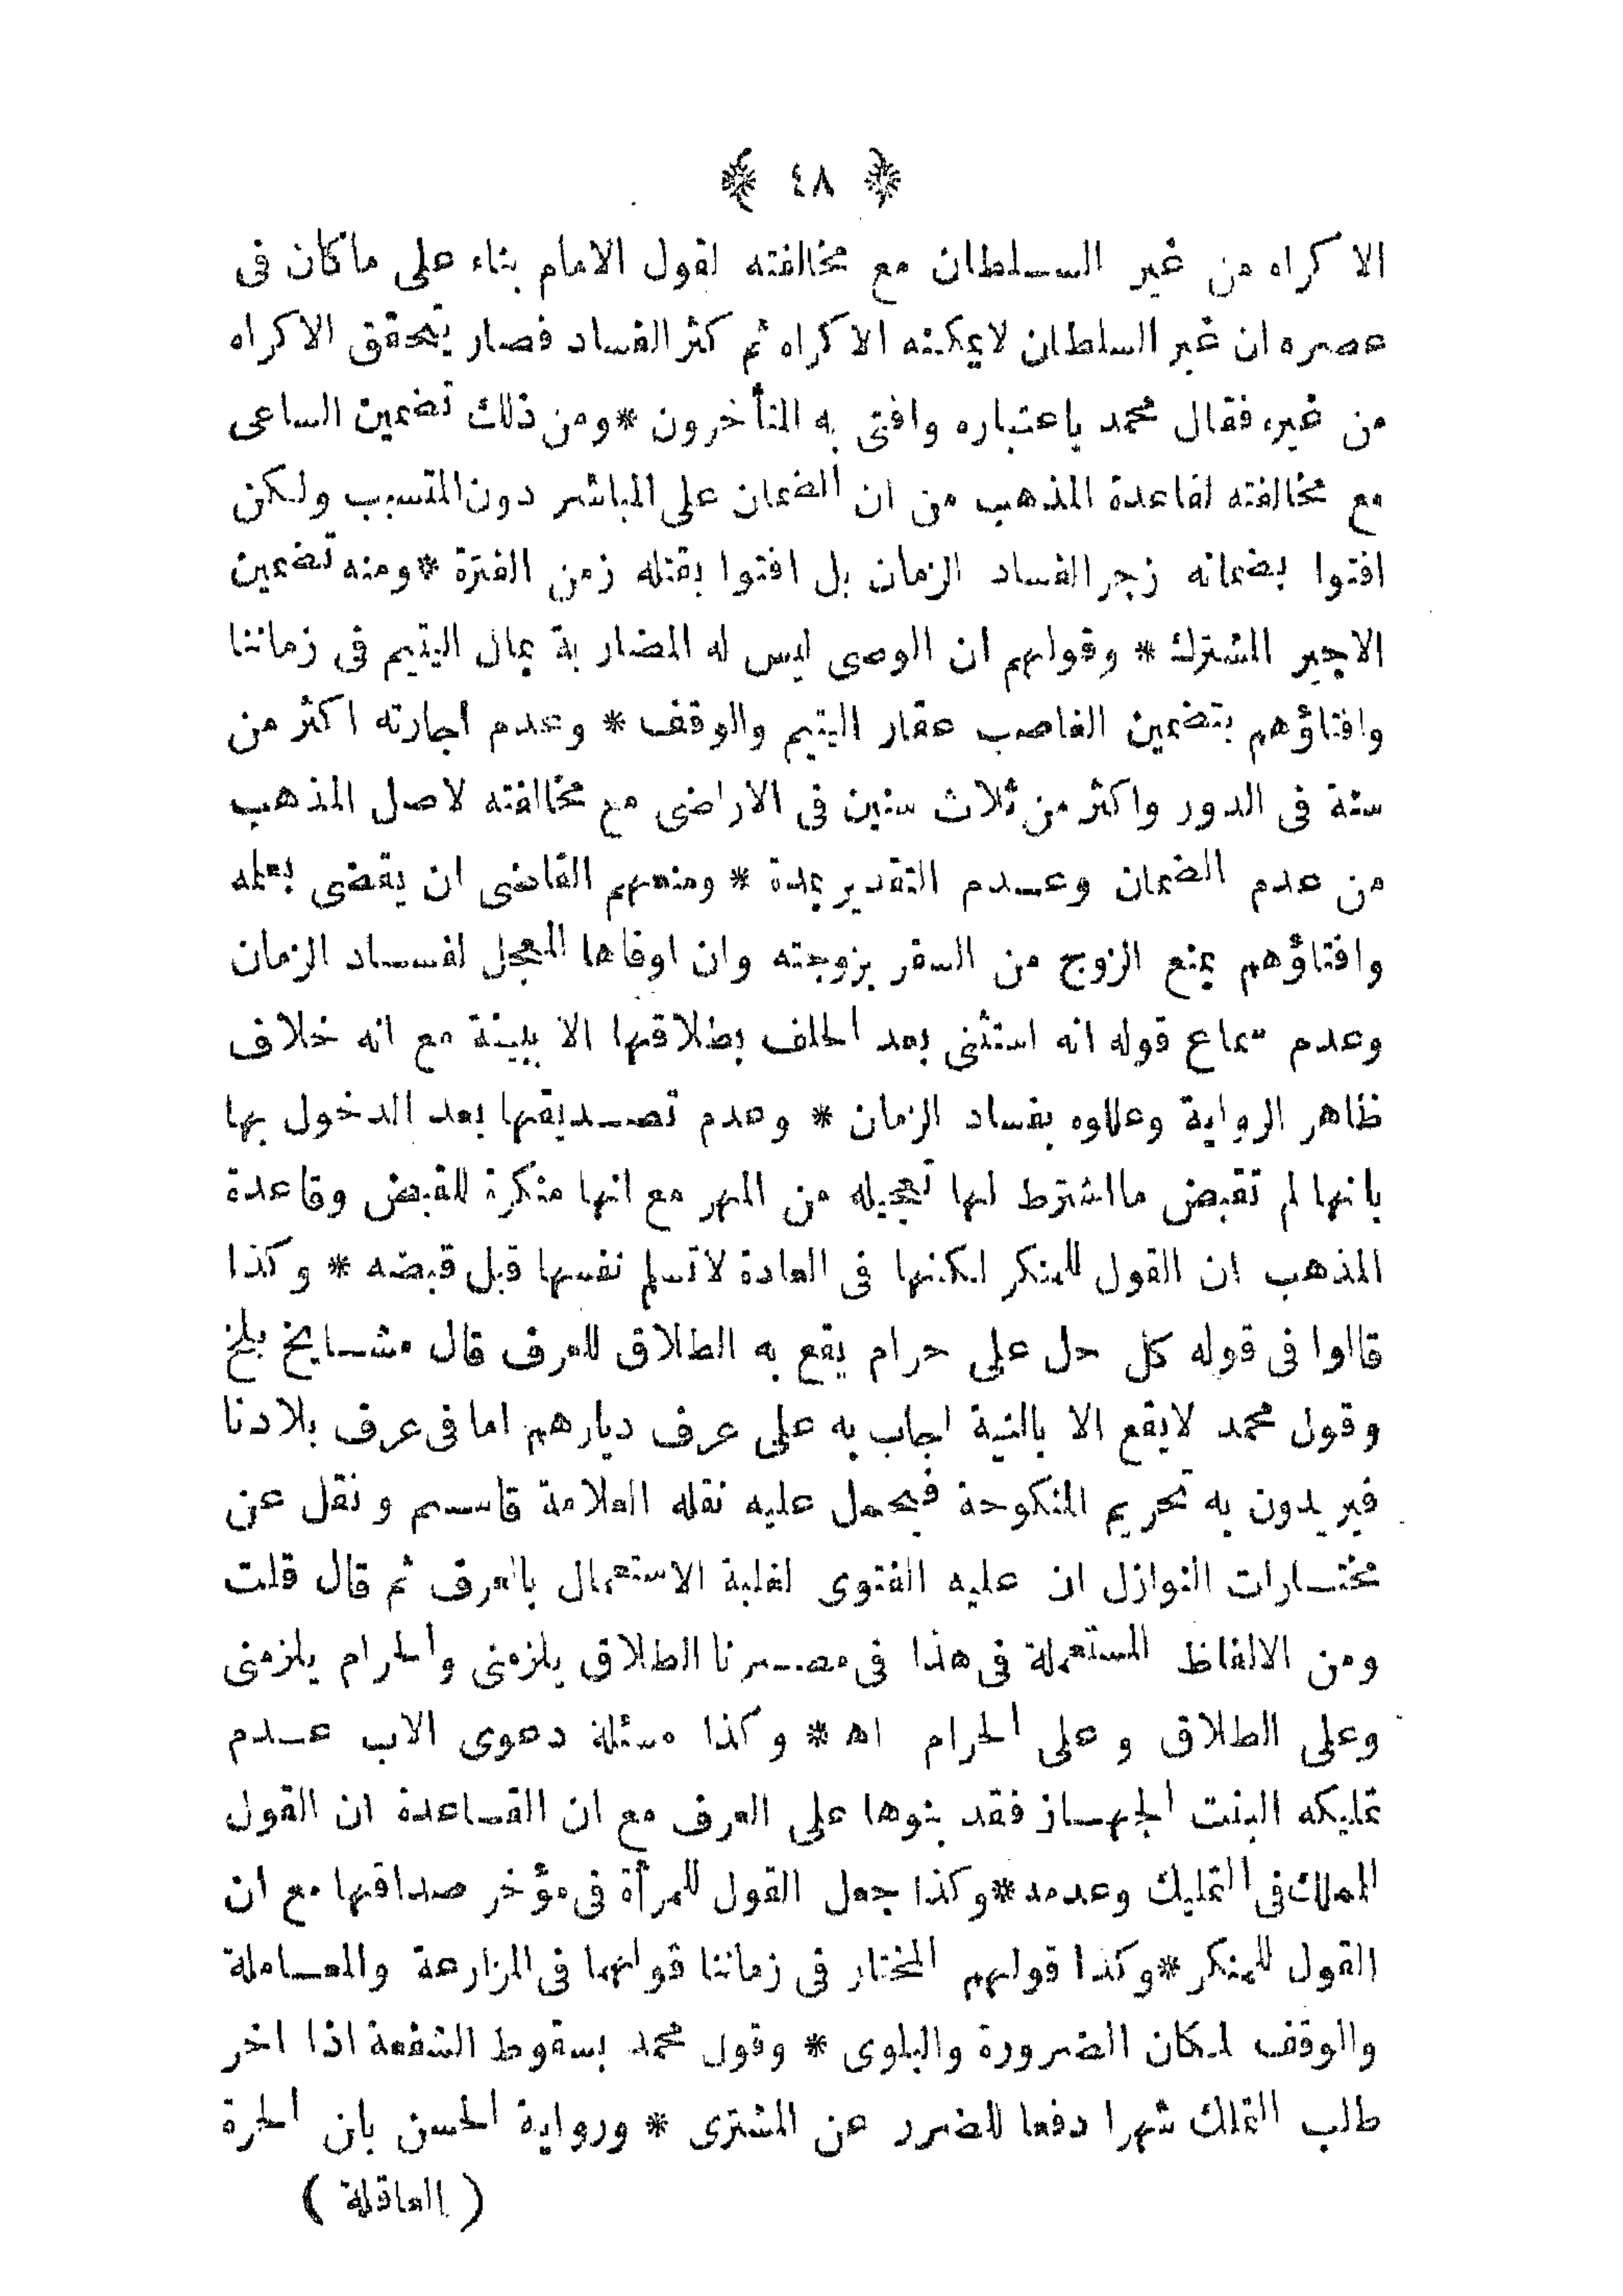 ﴿ ٤٨ ﴾
الاكراه من غير السلطان مع مخالفته لقول الامام بناء على ماكان فى
عصره ان غير السلطان لايمكنه الاكراه ثم كثر الفساد فصار يتحقق الاكراه
من غيره فقال محمد باعتباره وافتى به المتأخرون * ومن ذلك تضمين الساعى
مع مخالفته لقاعدة المذهب من ان الضمان على المباشر دون المتسبب ولكن
افتوا بضمانه زجر الفساد الزمان بل افتوا بقتله زمن الفترة * ومنه تضمين
الاجير المشترك * وقولهم ان الوصى ليس له المضاربة بمال اليتيم فى زماننا
وافتاؤهم بتضمين الغاصب عقار اليتيم والوقف * وعدم اجارته اكثر من
سنة فى الدور واكثر من ثلاث سنين فى الاراضى مع مخالفته لاصل المذهب
من عدم الضمان وعدم التقدير بمدة * ومنعهم القاضى ان يقضى بعلمه
وافتاؤهم بمنع الزوج من السفر بزوجته وان اوفاها المعجل لفساد الزمان
وعدم سماع قوله انه استثنى بعد الحلف بطلاقها الا ببينة مع انه خلاف
ظاهر الرواية وعللوه بفساد الزمان * وعدم تصديقها بعد الدخول بها
بانها لم تقبض مااشترط لها تعجيله من المهر مع انها منكرة للقبض وقاعدة
المذهب ان القول للمنكر لكنها فى العادة لاتسلم نفسها قبل قبضه * وكذا
قالوا فى قوله كل حل على حرام يقع به الطلاق للعرف قال مشايخ بلخ
وقول محمد لايقع الا بالنية اجاب به على عرف ديارهم اما فى عرف بلادنا
فيريدون به تحريم المنكوحة فيحمل عليه نقله العلامة قاسم ونقل عن
مختارات النوازل ان عليه الفتوى لغلبة الاستعمال بالعرف ثم قال قلت
ومن الالفاظ المستعملة فى هذا فى مصرنا الطلاق يلزمنى والحرام يلزمنى
وعلى الطلاق وعلى الحرام اه * وكذا مسئلة دعوى الاب عدم
تمليكه البنت الجهاز فقد بنوها على العرف مع ان القاعدة ان القول
للملك فى التمليك وعدمه * وكذا جعل القول للمرأة فى مؤخر صداقها مع ان
القول للمنكر * وكذا قولهم المختار فى زماننا قولهما فى المزارعة والمعاملة
والوقف لمكان الضرورة والبلوى * وقول محمد بسقوط الشفعة اذا اخر
طلب التملك شهرا دفعا للضرر عن المشترى * ورواية الحسن بان الحرة
( العاقلة )